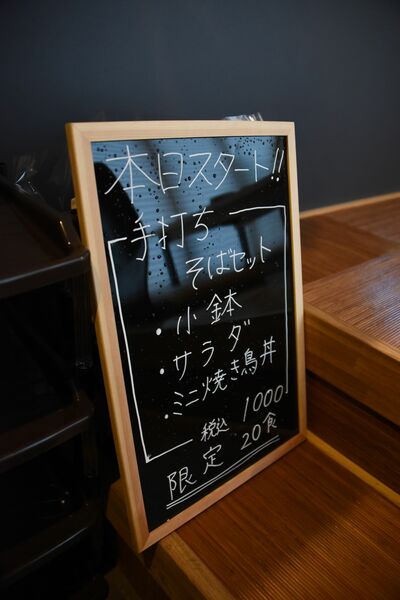 本日スタート!!
手打ち
そばセット
・小鉢
・サラダ
・ミニ焼き鳥丼
税込 1000
限定 20食